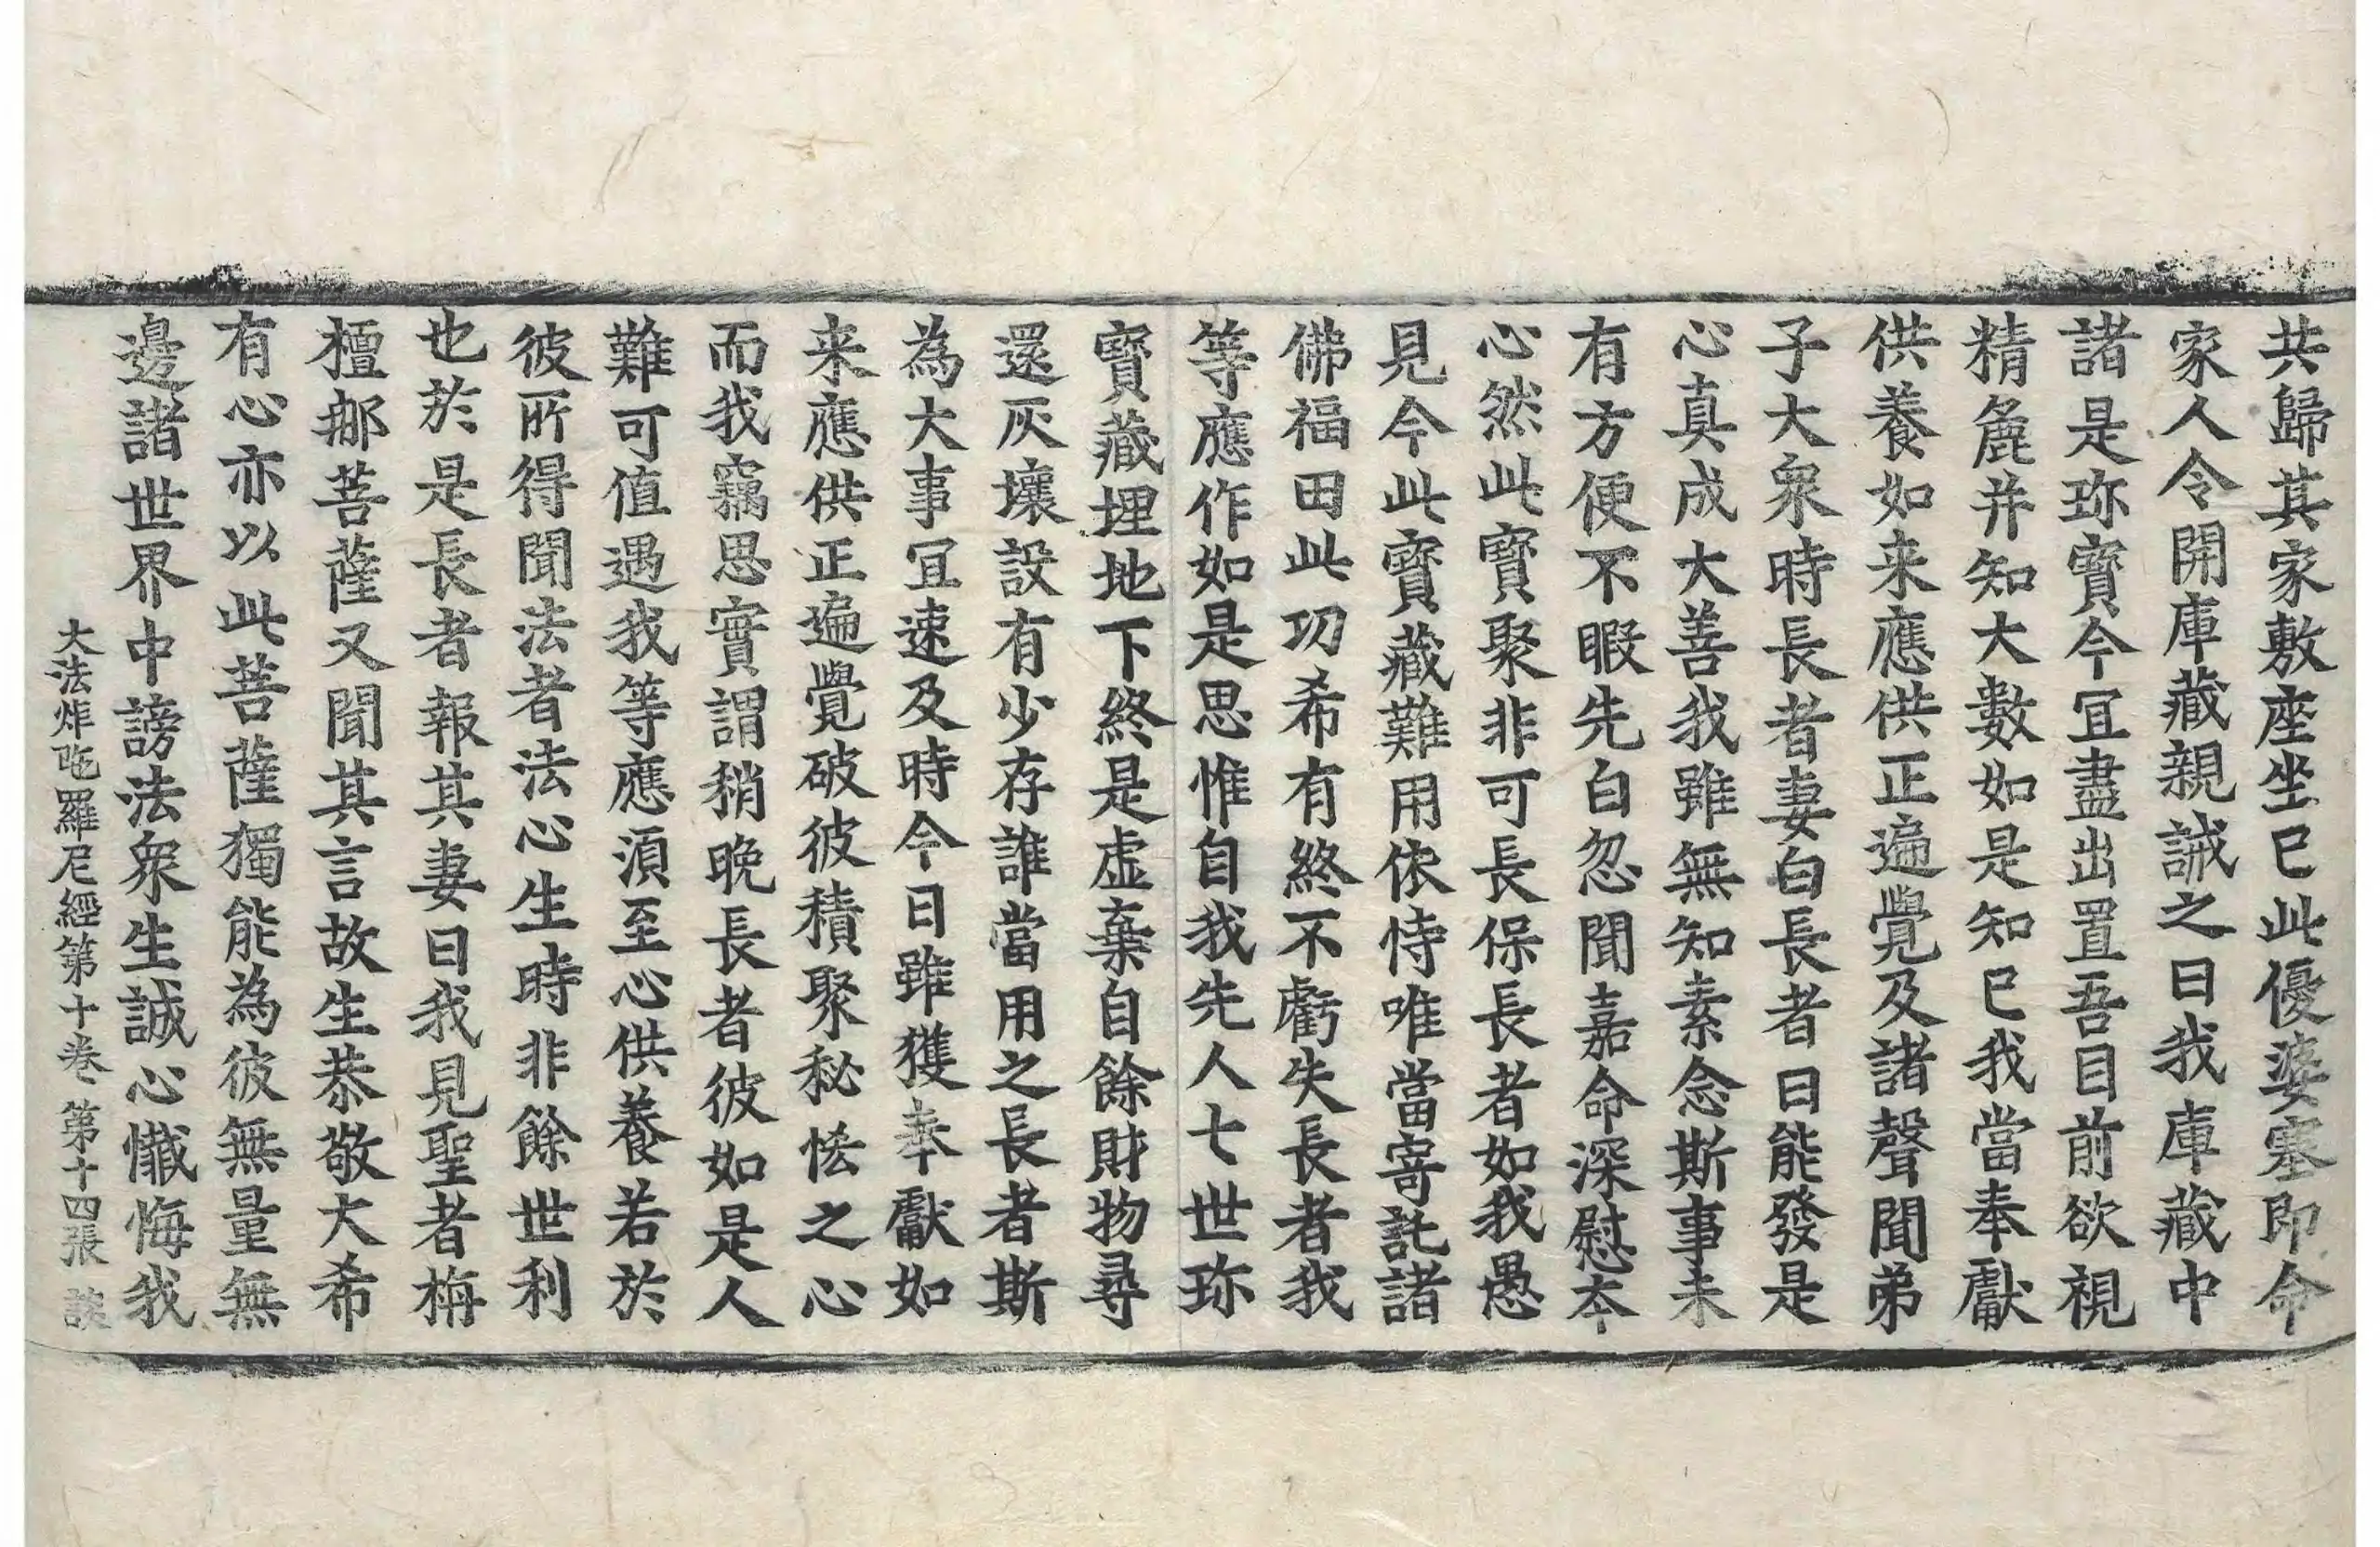 共歸其家敷座坐已此優婆塞即命
家人令開庫藏親誡之曰我庫藏中
諸是珎寳今冝盡出置吾目前欲視
精麁并知大數如是知已我當奉獻
供養如来應供正遍覺及諸聲聞弟
子大衆時長者妻白長者曰能發是
心真成大善我雖無知素念斯事未
有方便不暇先白忽聞嘉命深慰夲
心然此寳聚非可長保長者如我愚
見今此寳藏難用依恃唯當寄託諸
佛福田此功希有終不虧失長者我
等應作如是思惟自我先人七世珎
寳藏埋地下終是虚棄自餘財物尋
還灰壞設有少存誰當用之長者斯
為大事冝速及時今日雖獲奉獻如
来應供正遍覺破彼積聚秘恡之心
而我竊思實謂稍晚長者彼如是人
難可值遇我等應湏至心供養若於
彼所得聞法者法心生時非餘世利
也於是長者報其妻曰我見聖者栴
檀㖠菩薩又聞其言故生恭敬大希
有心亦以此菩薩獨能為彼無量無
邊諸世界中謗法衆生誠心懺悔我
大法炬陁羅尼經第十卷 第十四張 談